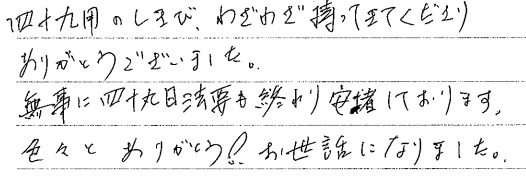 四十九用のしきび、わざわざ持ってきてくださり
ありがとうございました。
無事に四十九日法要も終わり安堵しております。
色々とありがとう!お世話になりました。